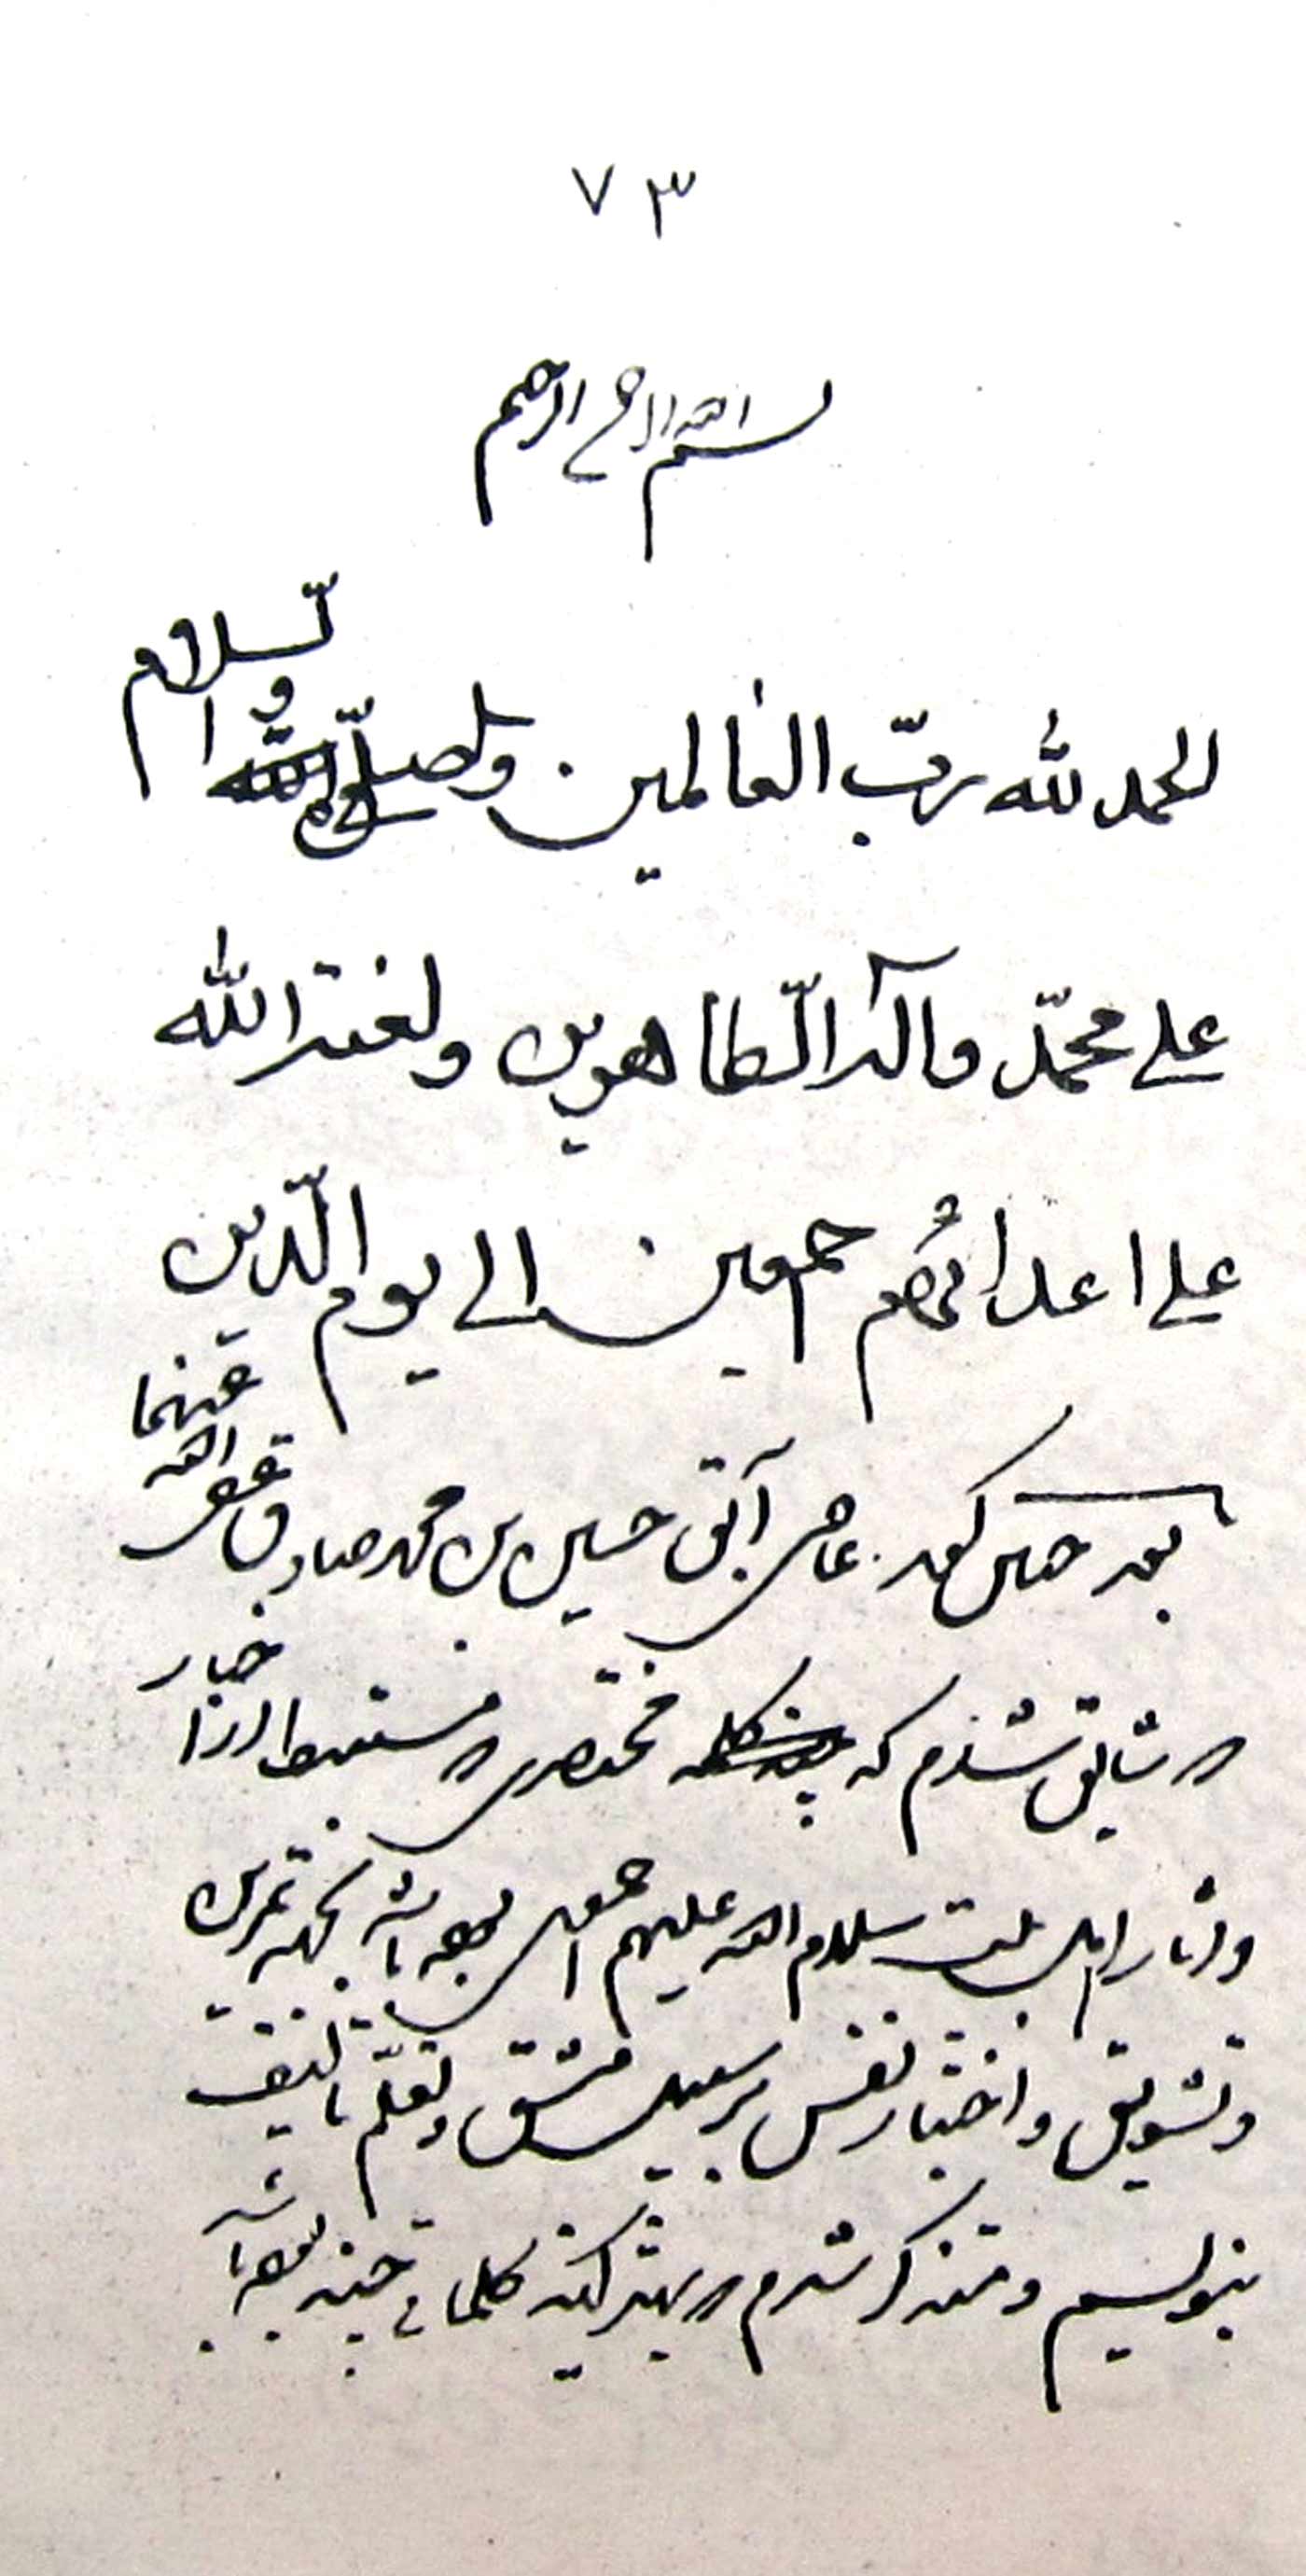 ٧٣
بسم الله الرحمن الرحیم
الحمد لله ربّ العالمین و الصلوة و السّلام
علی محمّد و آله الطّاهرین و لعنة الله
علی اعدائهم اجمعین الی یوم الدّین
بعد چنین گوید عاصی آبق حسین بن محمد صادق عفی الله عنهما
شایق شدم که مختصری مستنبط از اخبار
و آثار اهل بیت سلام الله علیهم اجمعین بوده باشد بجهة تمرین
و تشویق و اختبار نفس بر سبیل مشق و تعلّم تألیف
بنویسم و متذکر شدم بهتر اینکه کلماتی چند بوده باشد